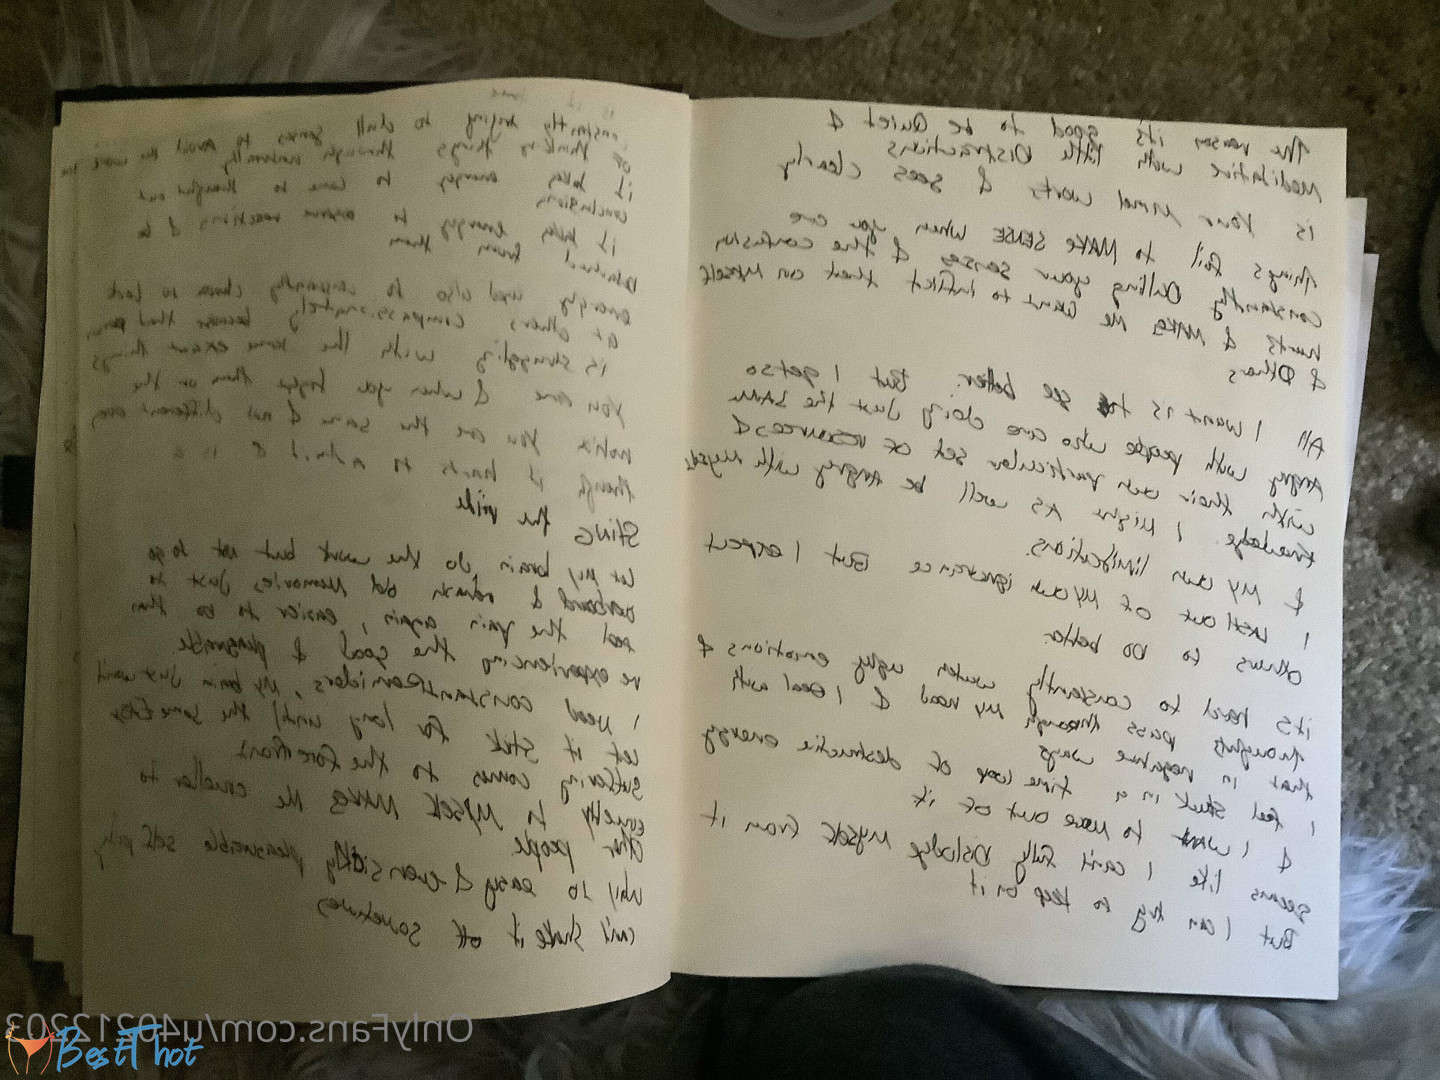 The reason it's good to be Quiet &
Meditative with little Distractions
is Your mind works & sees clearly
things fail to MAKE SENSE when you are
constantly Dulling your senses & the confusion
hurts & MAKES Me Want to inflict that on Myself
& Others
All I want is to see better. But I get so
Angry with people who are doing just the SAME
with their own particular set of resources &
Knowledge. I Might AS well be ANGRY with Myself
& My own limitations.
I lash out of My own ignorance But I expect
others to DO better.
its hard to constantly watch ugly emotions &
thoughts pass through My head & I Deal with
that in negative ways
I feel stuck in a time loop of destructive energy
& I want to Move out of it
seems like I can't fully Dislodge Myself from it
But I can try to keep on it
is it
constantly trying to dull senses to avoid the work
of thinking things through naturally
it takes energy to come to thought out
conclusions
it takes energy to observe reactions & be
detached from them
energy used also to constantly chose to look
at others compassionately because that person
is struggling with the same exact things
You are & when you forget them or the
notion you are the same & not different any
though it hurts to admit & is a
STING the pride
Let My brain do the work but not to go
overboard & rehash old Memories just to
feel the pain again, easier to do than
re experiencing the good & pleasurable
I need constant Reminders, My brain Just wont
Let it stick for long until the some
suffering comes to the forefront
cruelty to MYSELF MAKES Me crueller to
other people.
Why so easy & even sickly pleasurable self pity
can't shake it off sometimes
OnlyFans.com/u40212203
BestThot